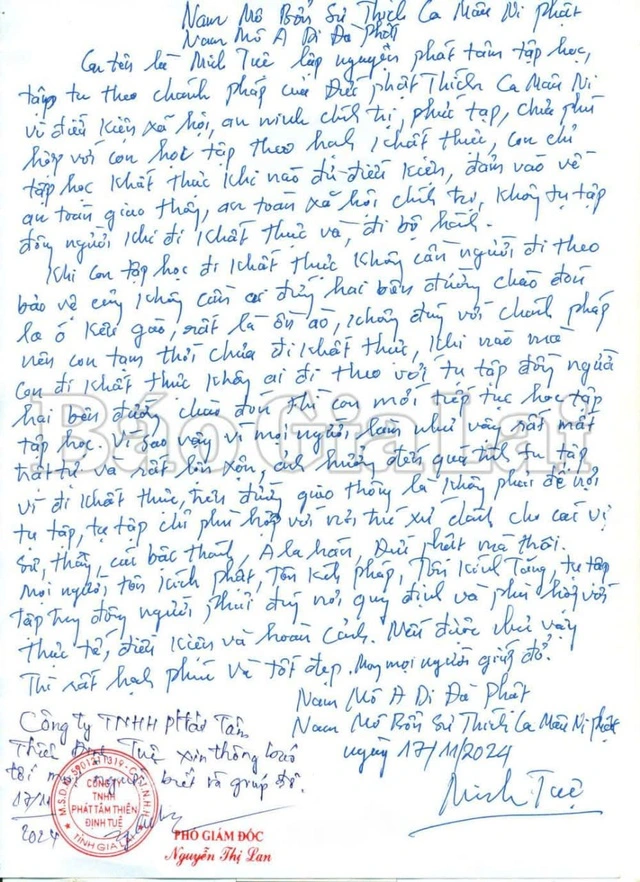 Nam Mô Bổn Sư Thích Ca Mâu Ni Phật
Nam Mô A Di Đà Phật
Con tên là Minh Tuệ lập nguyện phát tâm tập học,
tập tu theo chánh pháp của Đức phật Thích Ca Mâu Ni
vì điều kiện xã hội, an ninh chính trị, phức tạp, chưa phù
hợp với con học tập theo hạnh khất thực, con chỉ
tập học khất thực khi nào đủ điều kiện, đảm bảo về
an toàn giao thông, an toàn xã hội chính trị, không tụ tập
đông người khi đi khất thực và, đi bộ hành.
Khi con tập học đi khất thực không cần người đi theo
bảo vệ cũng không cần ai đứng hai bên đường chào đón
la ó kêu gào, rất là ồn ào, không đúng với chánh pháp
nên con tạm thời chưa đi khất thực, khi nào mà
con đi khất thực không ai đi theo với tụ tập đông người
hai bên đường chào đón thì con mới tiếp tục học tập
tập học. Vì sao vậy vì mọi người làm như vậy rất mất
trật tự và rất lộn xộn, ảnh hưởng đến quá trình tu tập
vì đi khất thực, trên đường giao thông là không phải để nơi
tụ tập, tụ tập chỉ phù hợp với nơi trú xứ dành cho các vị
sư, thầy, các bậc thánh, A la hán, Đức phật mà thôi.
mọi người tôn kính phật, Tôn kính pháp, Tôn kính Tăng, tụ tập
tập trung đông người phải đúng nơi quy định và phù hợp với
thực tế, điều kiện và hoàn cảnh. Nếu được như vậy
Thì rất hạnh phúc và tốt đẹp. Mong mọi người giúp đỡ.
Nam Mô A Di Đà Phật
Nam Mô Bổn Sư Thích Ca Mâu Ni phật
ngày 17/11/2024
Minh Tuệ
Công ty TNHH Phát Tâm
Thiền Định Tuệ xin thông báo
tới mọi người biết và giúp đỡ.
17/11
2024
CÔNG TY
TNHH
PHÁT TÂM THIỀN
ĐỊNH TUỆ
TỈNH GIA LAI
PHÓ GIÁM ĐỐC
Nguyễn Thị Lan
Báo Gia Lai